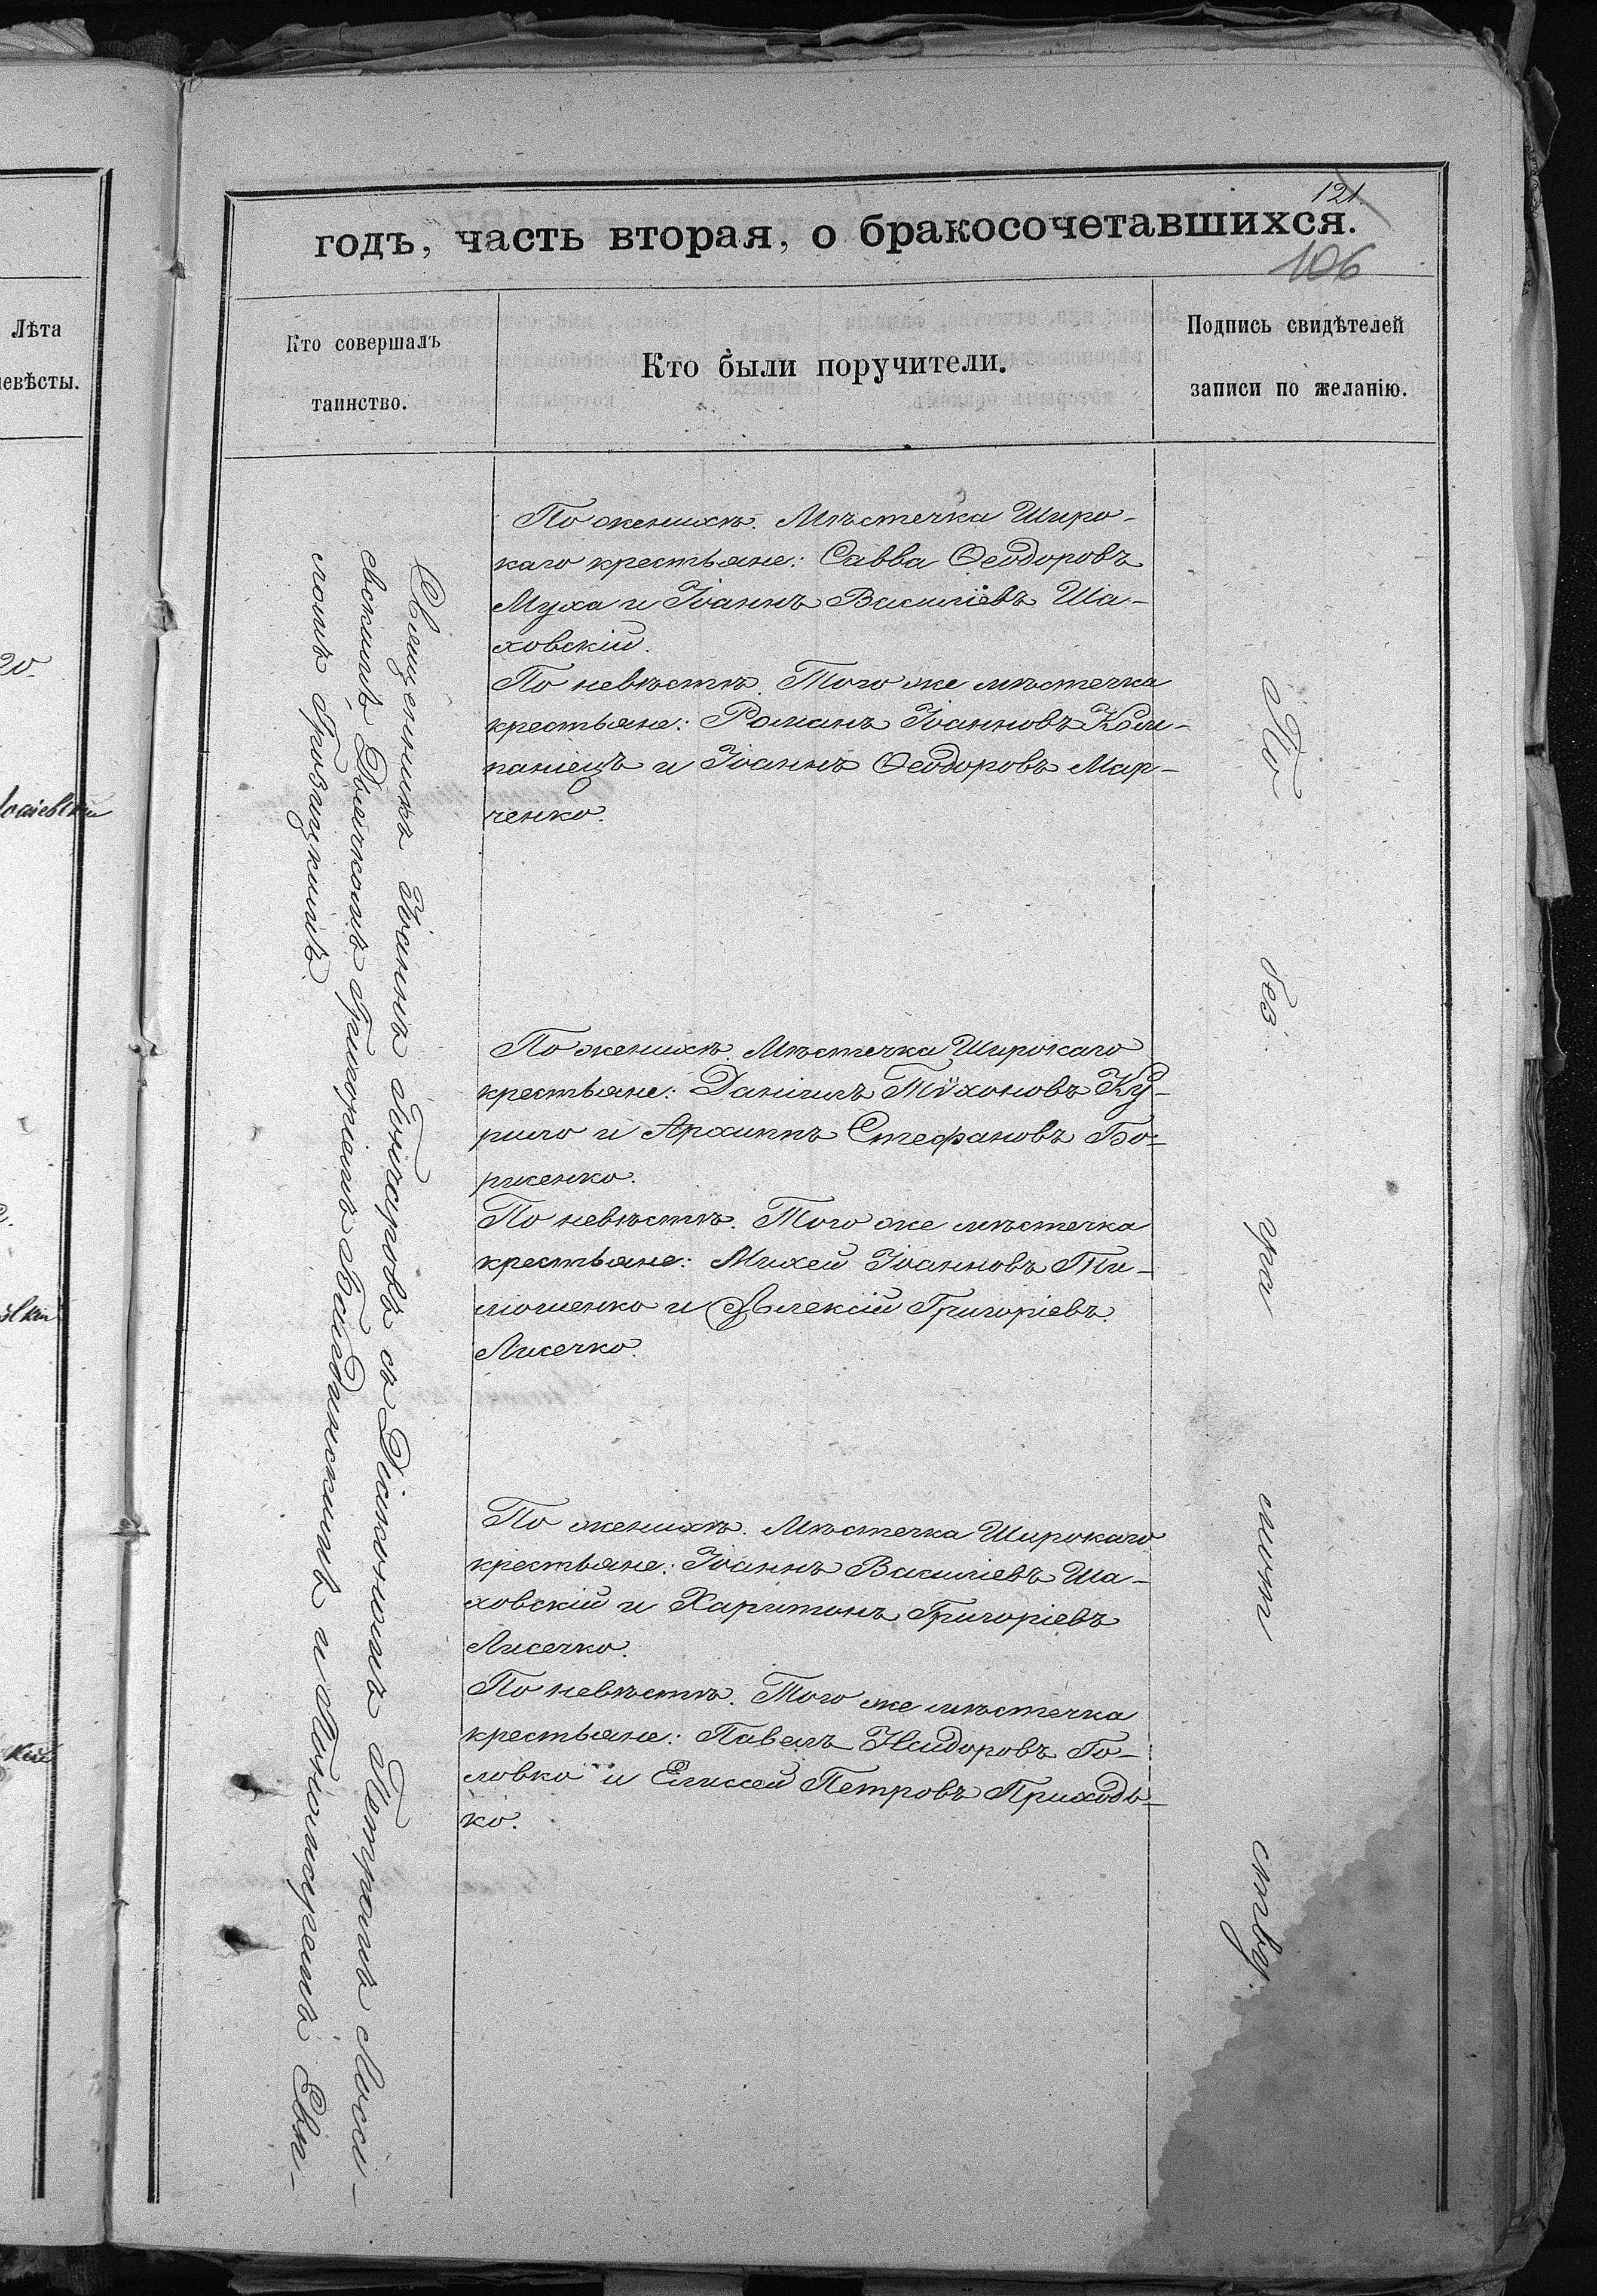 Лѣта
невѣсты.
121.
годъ, часть вторая, о бракосочетавшихся.
106
Кто совершалъ
таинство.
Кто были поручители.
Подпись свидѣтелей
записи по желанію.
Священникъ Іоаннъ Гончаровъ съ Діакономъ Петромъ Лоссі-
евскимъ Дьячкомъ Григоріемъ и Пономаремъ Евѳи-
міемъ Грабицкимъ
По женихѣ. Мѣстечка Широ-
каго крестьяне: Савва Ѳеодоровъ
Муха и Іоаннъ Василіевъ Ша-
ховскій.
По невѣстѣ. Того же мѣстечка
крестьяне: Романъ Іоанновъ Ком-
паніецъ и Іоаннъ Ѳеодоровъ Мар-
ченко.
По женихѣ. Мѣстечка Широкаго
крестьяне: Даніилъ Тѵхоновъ Ку-
рило и Архиппъ Стефановъ Бо-
риженко.
По невѣстѣ. Того же мѣстечка
крестьяне: Михей Іоанновъ Ти-
мошенко и Алексій Григоріевъ
Лисечко.
По женихѣ. Мѣстечка Широкаго
крестьяне: Іоаннъ Василіевъ Ша-
ховскій и Харитонъ Григоріевъ
Лисечко.
По невѣстѣ. Того же мѣстечка
крестьяне: Павелъ Исидоровъ Го-
ловко и Елисей Петровъ Приходь-
ко.
По без гра мот ству.